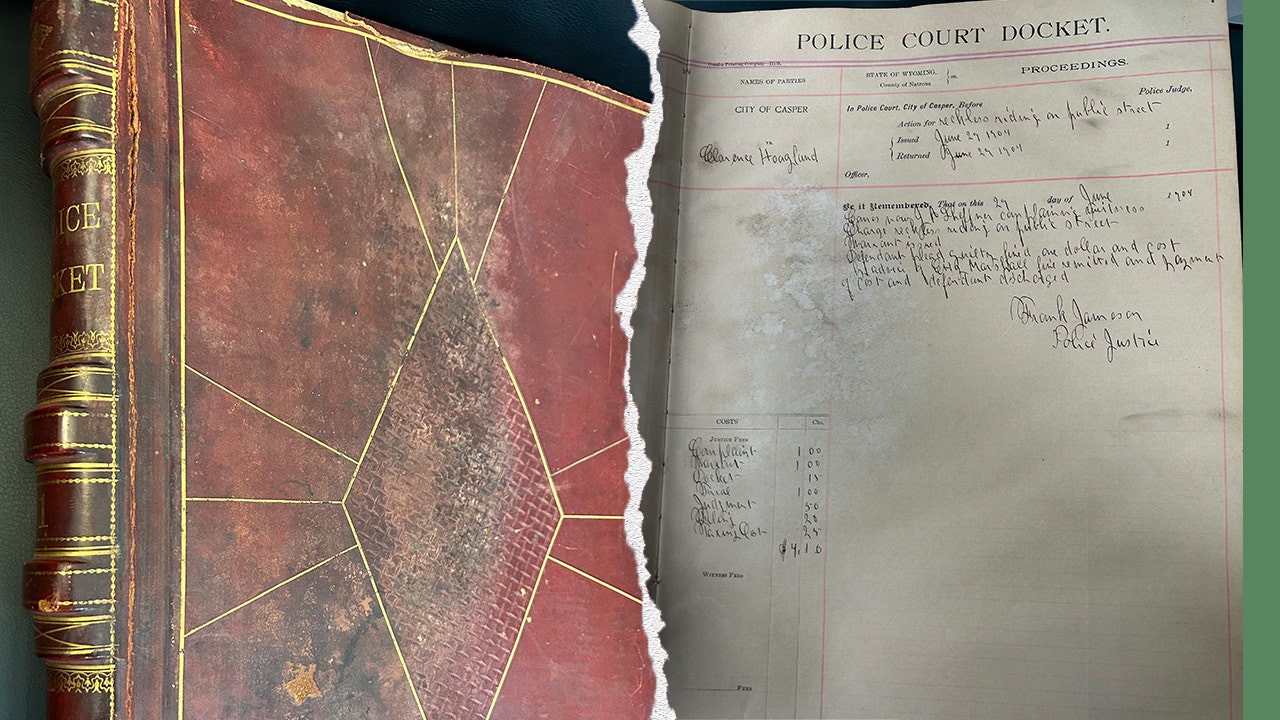 ICE
CKET
1
POLICE COURT DOCKET.
NAMES OF PARTIES
STATE OF WYOMING, } ss.
County of Natrona
PROCEEDINGS.
CITY OF CASPER
vs.
Clarence Hoagland
In Police Court, City of Casper, Before
Police Judge,
Action for reckless riding on public street
Issued June 29 1904 1
Returned June 29 1904 1
Officer,
Be it Remembered, That on this 29 day of June 1904
Comes now complaining witness
Charge reckless riding on public street
Warrant issued
Defendant plead guilty fined one dollar and cost
by advice of City Marshall fine remitted and payment
of cost and defendant discharged
Frank Jameson
Police Justice
COSTS Cts.
JUSTICE FEES
Complaint 1 00
Warrant 1 00
Docket 15
Trial 1 00
Judgment 50
Filing 20
Taxing Cost 25
$ 4.10
WITNESS FEES
FEES